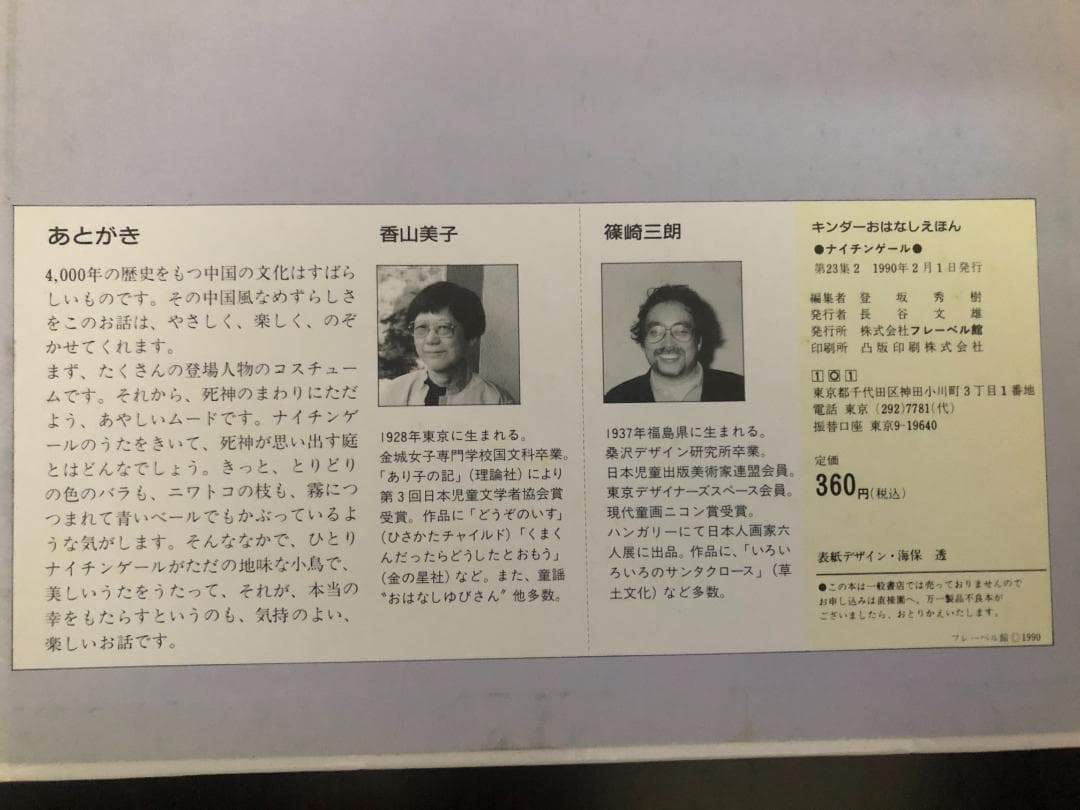 あとがき
4,000年の歴史をもつ中国の文化はすばら
しいものです。その中国風なめずらしさ
をこのお話は、やさしく、楽しく、のぞ
かせてくれます。
まず、たくさんの登場人物のコスチュー
ムです。それから、死神のまわりにただ
よう、あやしいムードです。ナイチンゲ
ールのうたをきいて、死神が思い出す庭
とはどんなでしょう。きっと、とりどり
の色のバラも、ニワトコの枝も、霧につ
つまれて青いベールでもかぶっているよ
うな気がします。そんななかで、ひとり
ナイチンゲールがただの地味な小鳥で、
美しいうたをうたって、それが、本当の
幸をもたらすというのも、気持のよい、
楽しいお話です。
香山美子
1928年東京に生まれる。
金城女子専門学校国文科卒業。
「あり子の記」(理論社)により
第3回日本児童文学者協会賞
受賞。作品に「どうぞのいす」
(ひさかたチャイルド)「くまく
んだったらどうしたとおもう」
(金の星社)など。また、童謡
〝おはなしゆびさん〟他多数。
篠崎三朗
1937年福島県に生まれる。
桑沢デザイン研究所卒業。
日本児童出版美術家連盟会員。
東京デザイナーズスペース会員。
現代童画ニコン賞受賞。
ハンガリーにて日本人画家六
人展に出品。作品に、「いろい
ろいろのサンタクロース」(草
土文化)など多数。
キンダーおはなしえほん
●ナイチンゲール●
第23集2 1990年2月1日発行
編集者 登坂秀樹
発行者 長谷文雄
発行所 株式会社フレーベル館
印刷所 凸版印刷株式会社
101
東京都千代田区神田小川町3丁目1番地
電話 東京(292)7781(代)
振替口座 東京9-19640
定価
360円(税込)
表紙デザイン・海保 透
●この本は一般書店では売っておりませんので
お申し込みは直接園へ。万一製品不良本が
ございましたら、おとりかえいたします。
フレーベル館©1990